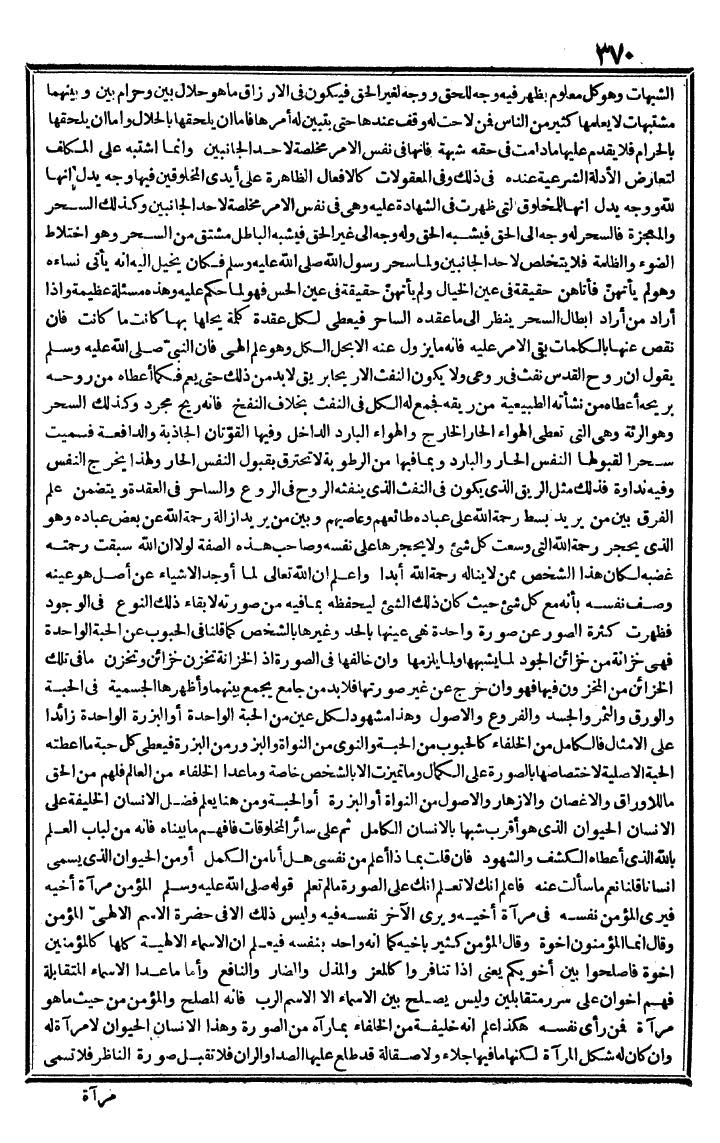 ٣٧٠
الشبهات وهو كل معلوم يظهر فيه وجه للحق ووجه لغير الحق فيكون فى الارزاق ما هو حلال بين وحرام بين وبينهما
مشتبهات لا يعلمها كثير من الناس فمن لاحت له وقف عندها حتى يتبين له أمرها فاما ان يلحقها بالحلال واما ان يلحقها
بالحرام فلا يقدم عليها ما دامت فى حقه شبهة فانها فى نفس الامر مخلصة لاحد الجانبين وانما اشتبه على المكلف
لتعارض الأدلة الشرعية عنده فى ذلك وفى المعقولات كالافعال الظاهرة على أيدى المخلوقين فيها وجه يدل انها
لله ووجه يدل انها للمخلوق التى ظهرت فى الشهادة عليه وهى فى نفس الامر مخلصة لاحد الجانبين وكذلك السحر
والمعجزة فالسحر له وجه الى الحق فيشبه الحق وله وجه الى غير الحق فيشبه الباطل مشتق من السحر وهو اختلاط
الضوء والظلمة فلا يتخلص لاحد الجانبين ولما سحر رسول الله صلى الله عليه وسلم فكان يخيل اليه انه يأتى نساءه
وهو لم يأتهنّ فأتاهن حقيقة فى عين الخيال ولم يأتهنّ حقيقة فى عين الحس فهو لما حكم عليه وهذه مسئلة عظيمة واذا
أراد من أراد ابطال السحر ينظر الى ما عقده الساحر فيعطى لكل عقدة كلمة يحلها بها كانت ما كانت فان
نقص عنها بالكلمات بقى الامر عليه فانه ما يزول عنه الا بحل الكل وهو علم الهى فان النبىّ صلى الله عليه وسلم
يقول ان روح القدس نفث فى روعى ولا يكون النفث الا ريحا بريق لابد من ذلك حتى يعم فكما أعطاه من روحه
بريحه أعطاه من نشأته الطبيعية من ريقه فجمع له الكل فى النفث بخلاف النفخ فانه ريح مجرد وكذلك السحر
وهو الرئة وهى التى تعطى الهواء الحار الخارج والهواء البارد الداخل وفيها القوّتان الجاذبة والدافعة فسميت
سحرا لقبولها النفس الحار والبارد وبما فيها من الرطوبة لا تحترق بقبول النفس الحار ولهذا يخرج النفس
وفيه نداوة فذلك مثل الريق الذى يكون فى النفث الذى ينفثه الروح فى الروع والساحر فى العقدة ويتضمن علم
الفرق بين من يريد بسط رحمة الله على عباده طائعهم وعاصيهم وبين من يريد ازالة رحمة الله عن بعض عباده وهو
الذى يحجر رحمة الله التى وسعت كل شئ ولا يحجرها على نفسه وصاحب هذه الصفة لولا ان الله سبقت رحمته
غضبه لكان هذا الشخص ممن لا يناله رحمة الله أبدا واعلم ان الله تعالى لما أوجد الاشياء عن أصل هو عينه
وصف نفسه بأنه مع كل شئ حيث كان ذلك الشئ ليحفظه بما فيه من صورته لابقاء ذلك النوع فى الوجود
فظهرت كثرة الصور عن صورة واحدة هى عينها بالحد وغيرها بالشخص كما قلنا فى الحبوب عن الحبة الواحدة
فهى خزانة من خزائن الجود لما يشبهها ولما يلزمها وان خالفها فى الصورة اذ الخزانة تخزن خزائن وتخزن ما فى تلك
الخزائن من المخزون فيها فهو وان خرج عن غير صورتها فلا بد من جامع يجمع بينهما وأظهرها الجسمية فى الحبة
والورق والثمر والجسد والفروع والاصول وهذا مشهود لكل عين من الحبة الواحدة أو البزرة الواحدة زائدا
على الامثال فالكامل من الخلفاء كالحبوب من الحبة والنوى من النواة والبزور من البزرة فيعطى كل حبة ما أعطته
الحبة الاصلية لاختصاصها بالصورة على الكمال وما تميزت الا بالشخص خاصة وما عدا الخلفاء من العالم فلهم من الحق
ما للاوراق والاغصان والازهار والاصول من النواة أو البزرة أو الحبة ومن هنا يعلم فضل الانسان الخليفة على
الانسان الحيوان الذى هو أقرب شبها بالانسان الكامل ثم على سائر المخلوقات فافهم ما بيناه فانه من لباب العلم
بالله الذى أعطاه الكشف والشهود فان قلت بماذا أعلم من نفسى هل أنا من الكمل أو من الحيوان الذى يسمى
انسانا قلنا نعم ما سألت عنه فاعلم انك لا تعلم انك على الصورة ما لم تعلم قوله صلى الله عليه وسلم المؤمن مرآة أخيه
فيرى المؤمن نفسه فى مرآة أخيه ويرى الآخر نفسه فيه وليس ذلك الا فى حضرة الاسم الالهىّ المؤمن
وقال انما المؤمنون اخوة وقال المؤمن كثير باخيه كما انه واحد بنفسه فيعلم ان الاسماء الالهية كلها كالمؤمنين
اخوة فاصلحوا بين أخويكم يعنى اذا تنافروا كالمعز والمذل والضار والنافع وأما ما عدا الاسماء المتقابلة
فهم اخوان على سرر متقابلين وليس يصلح بين الاسماء الا الاسم الرب فانه المصلح والمؤمن من حيث ما هو
مرآة فمن رأى نفسه هكذا علم انه خليفة من الخلفاء بما رآه من الصورة وهذا الانسان الحيوان لا مرآة له
وان كان له شكل المرآة لكنها ما فيها جلاء ولا صقالة قد طلع عليها الصدا والران فلا تقبل صورة الناظر فلا تسمى
مرآة